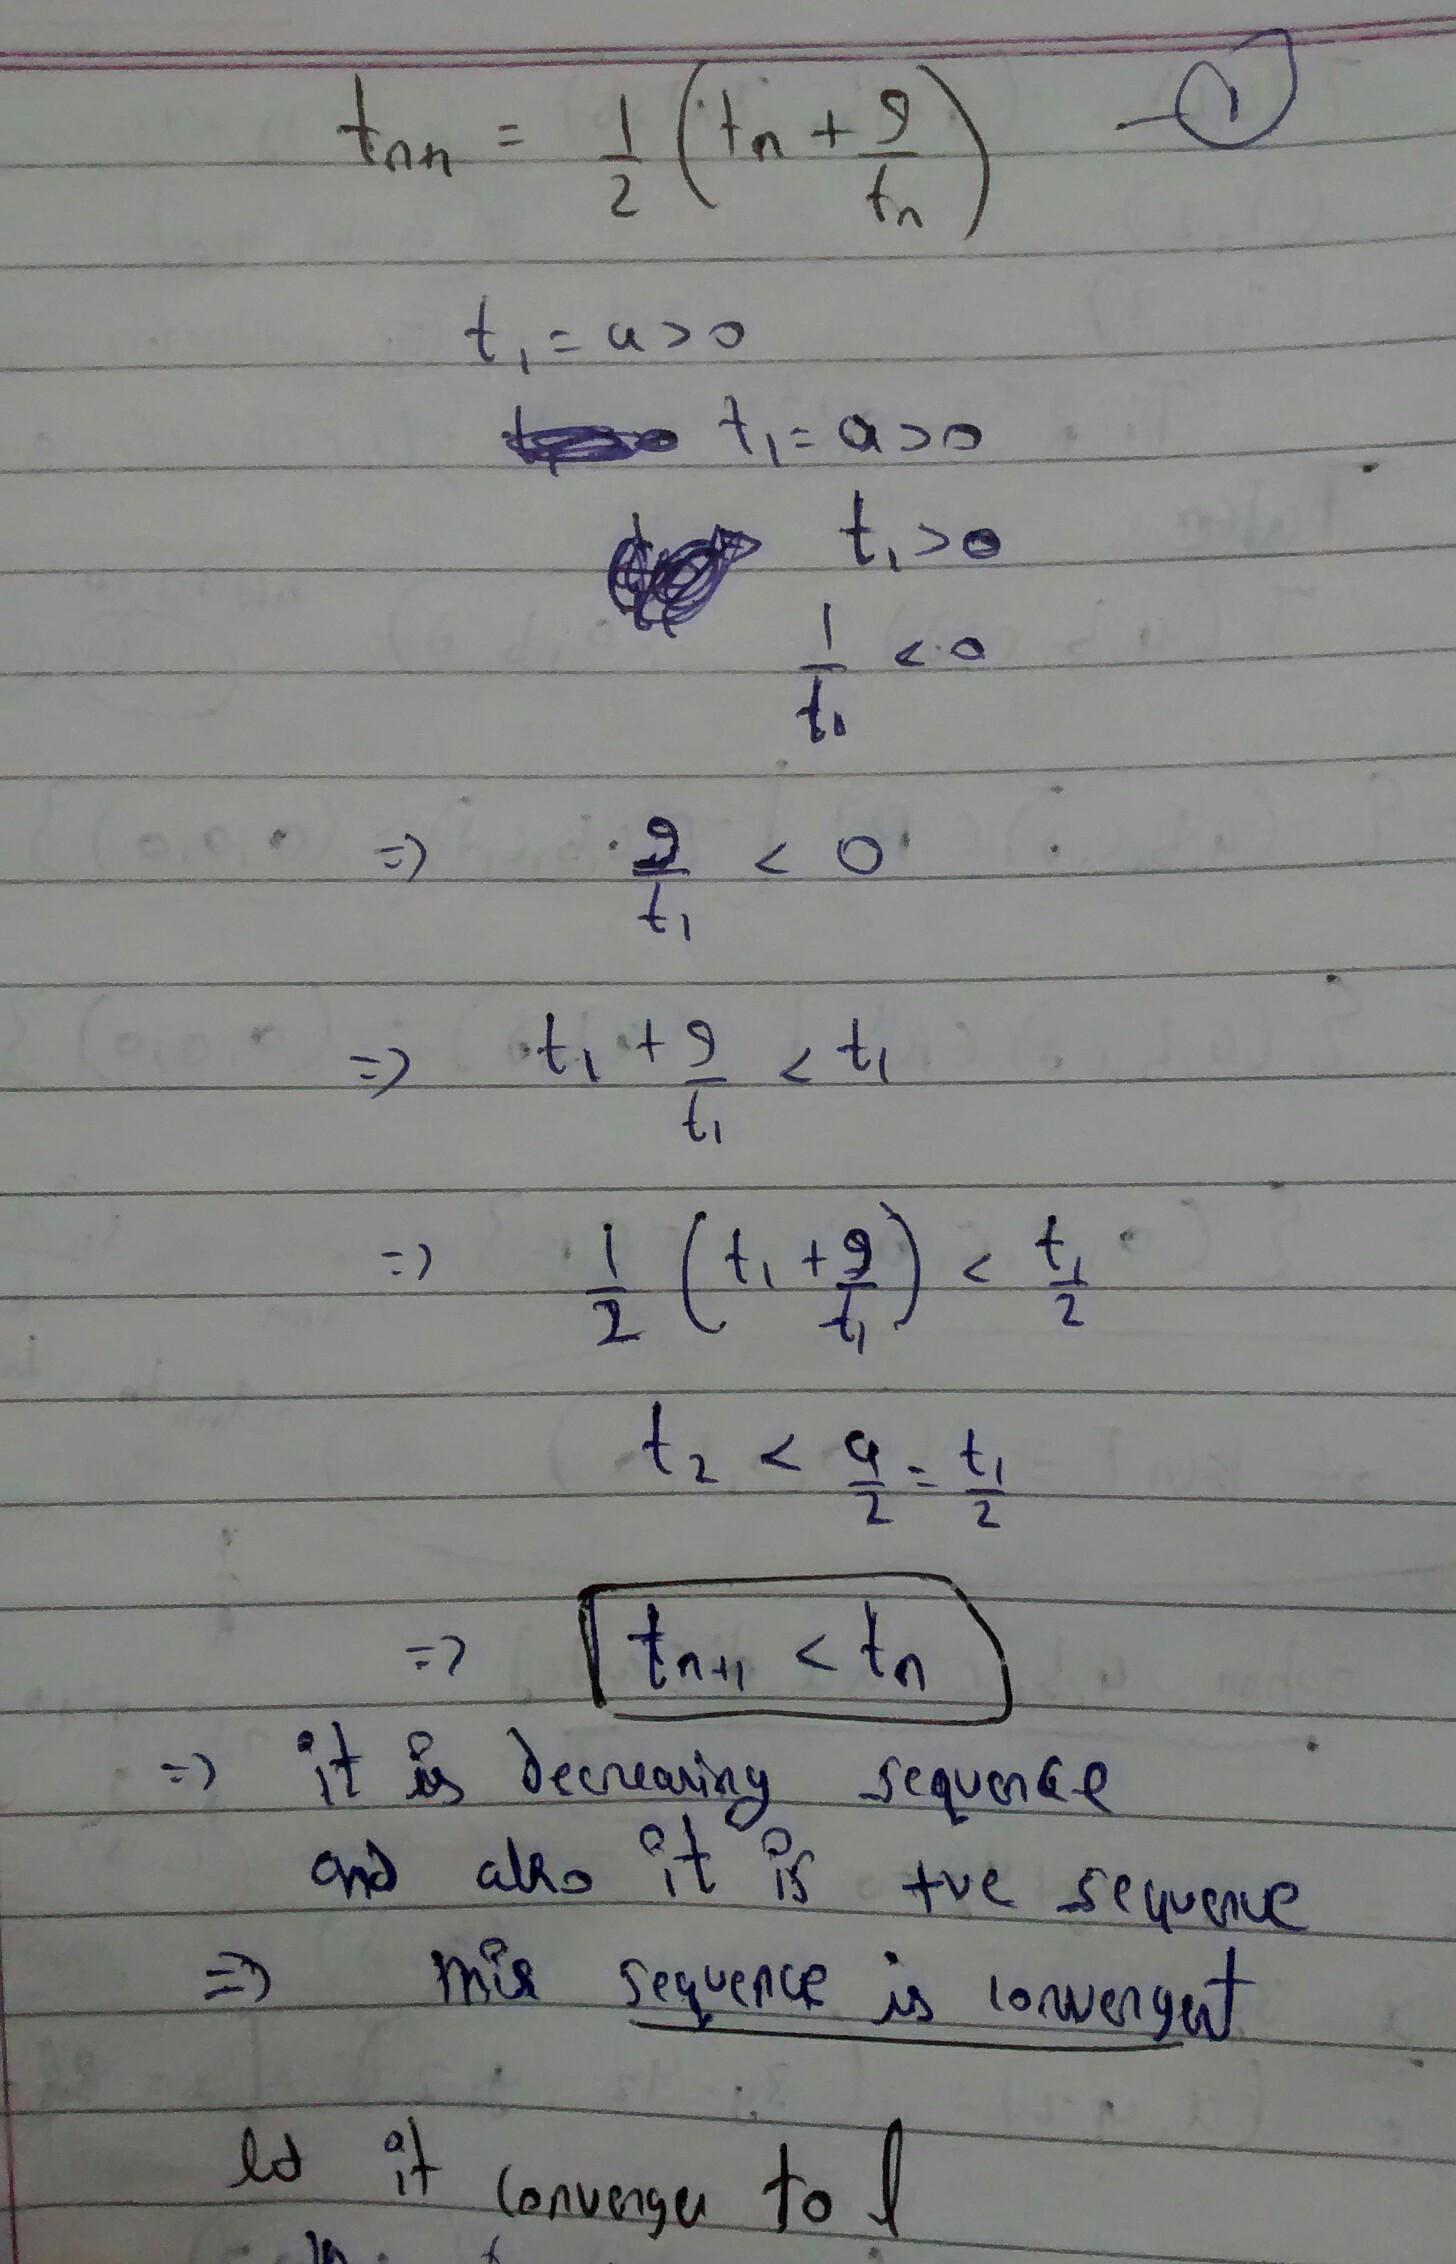 tₙₙ = 1/2 (tₙ + 9/tₙ) — ①
t₁ = a > 0
t₁ = a > 0
t₁ > 0
1/t₁ < 0
=> 9/t₁ < 0
=> t₁ + 9/t₁ < t₁
=> 1/2 (t₁ + 9/t₁) < t₁/2
t₂ < a/2 = t₁/2
=> tₙ₊₁ < tₙ
=> it is decreasing sequence
and also it is +ve sequence
=> this sequence is convergent
let it converges to l